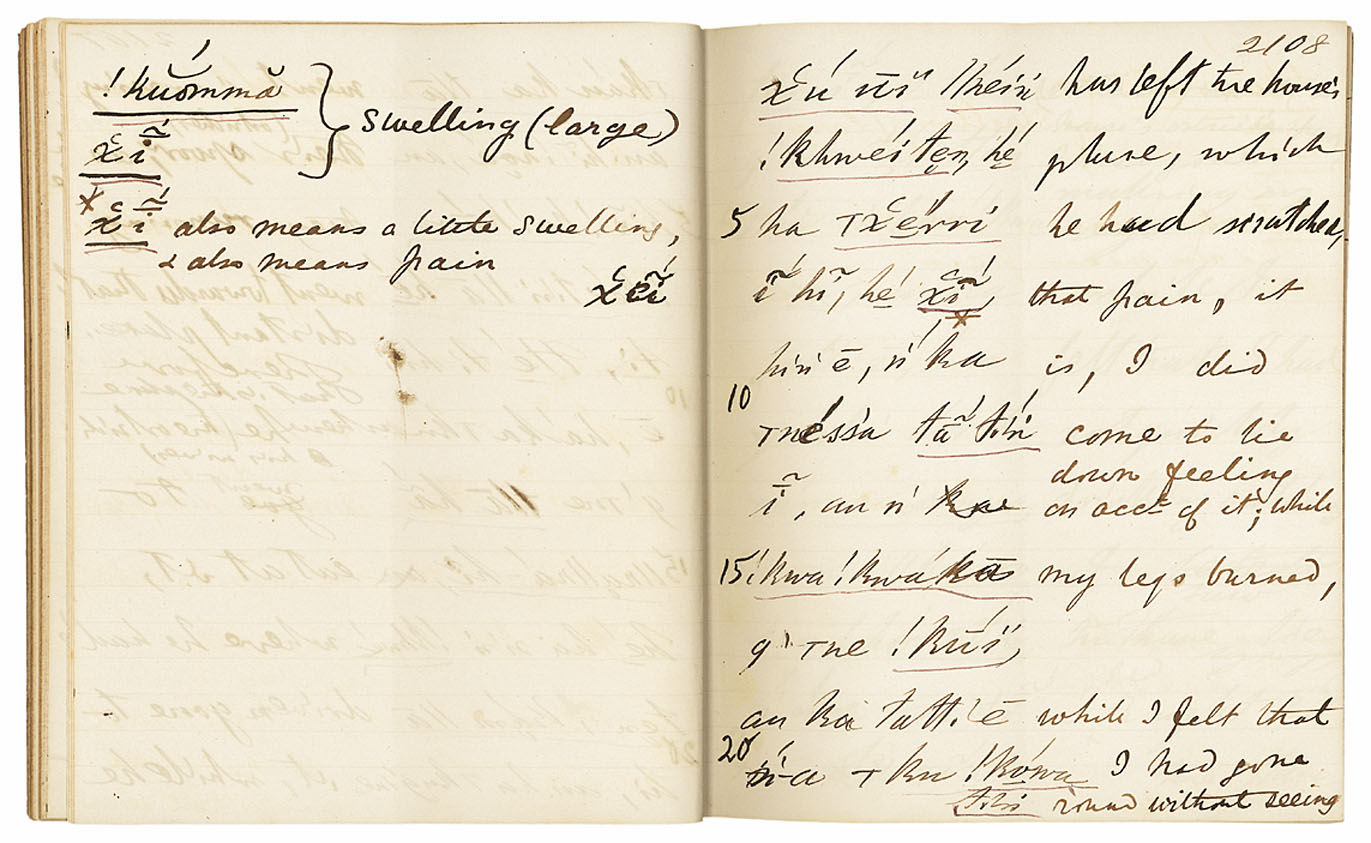 !kŭŏmmă
swelling (large)
x̆ĩ
* x̆ĩ also means a little swelling,
& also means pain
x̆ẽĩ
2108
has left the house's
!khwéíten, hé place, which
5 ha ⊤x̆érri he had scratched,
hĩ, hé x̆ĩ, that pain, it
*
híń ē, ń ka is, I did
10
⊤néssa tā̃ come to lie
down feeling
ĩ, au ń on acct of it; while
15 !kwa!kwákăs my legs burned,
g ⊤ne !kū́ï,
au ka tattĭ ē while I felt that
20 ń-a ⊤ku !kówa I had gone
round without seeing